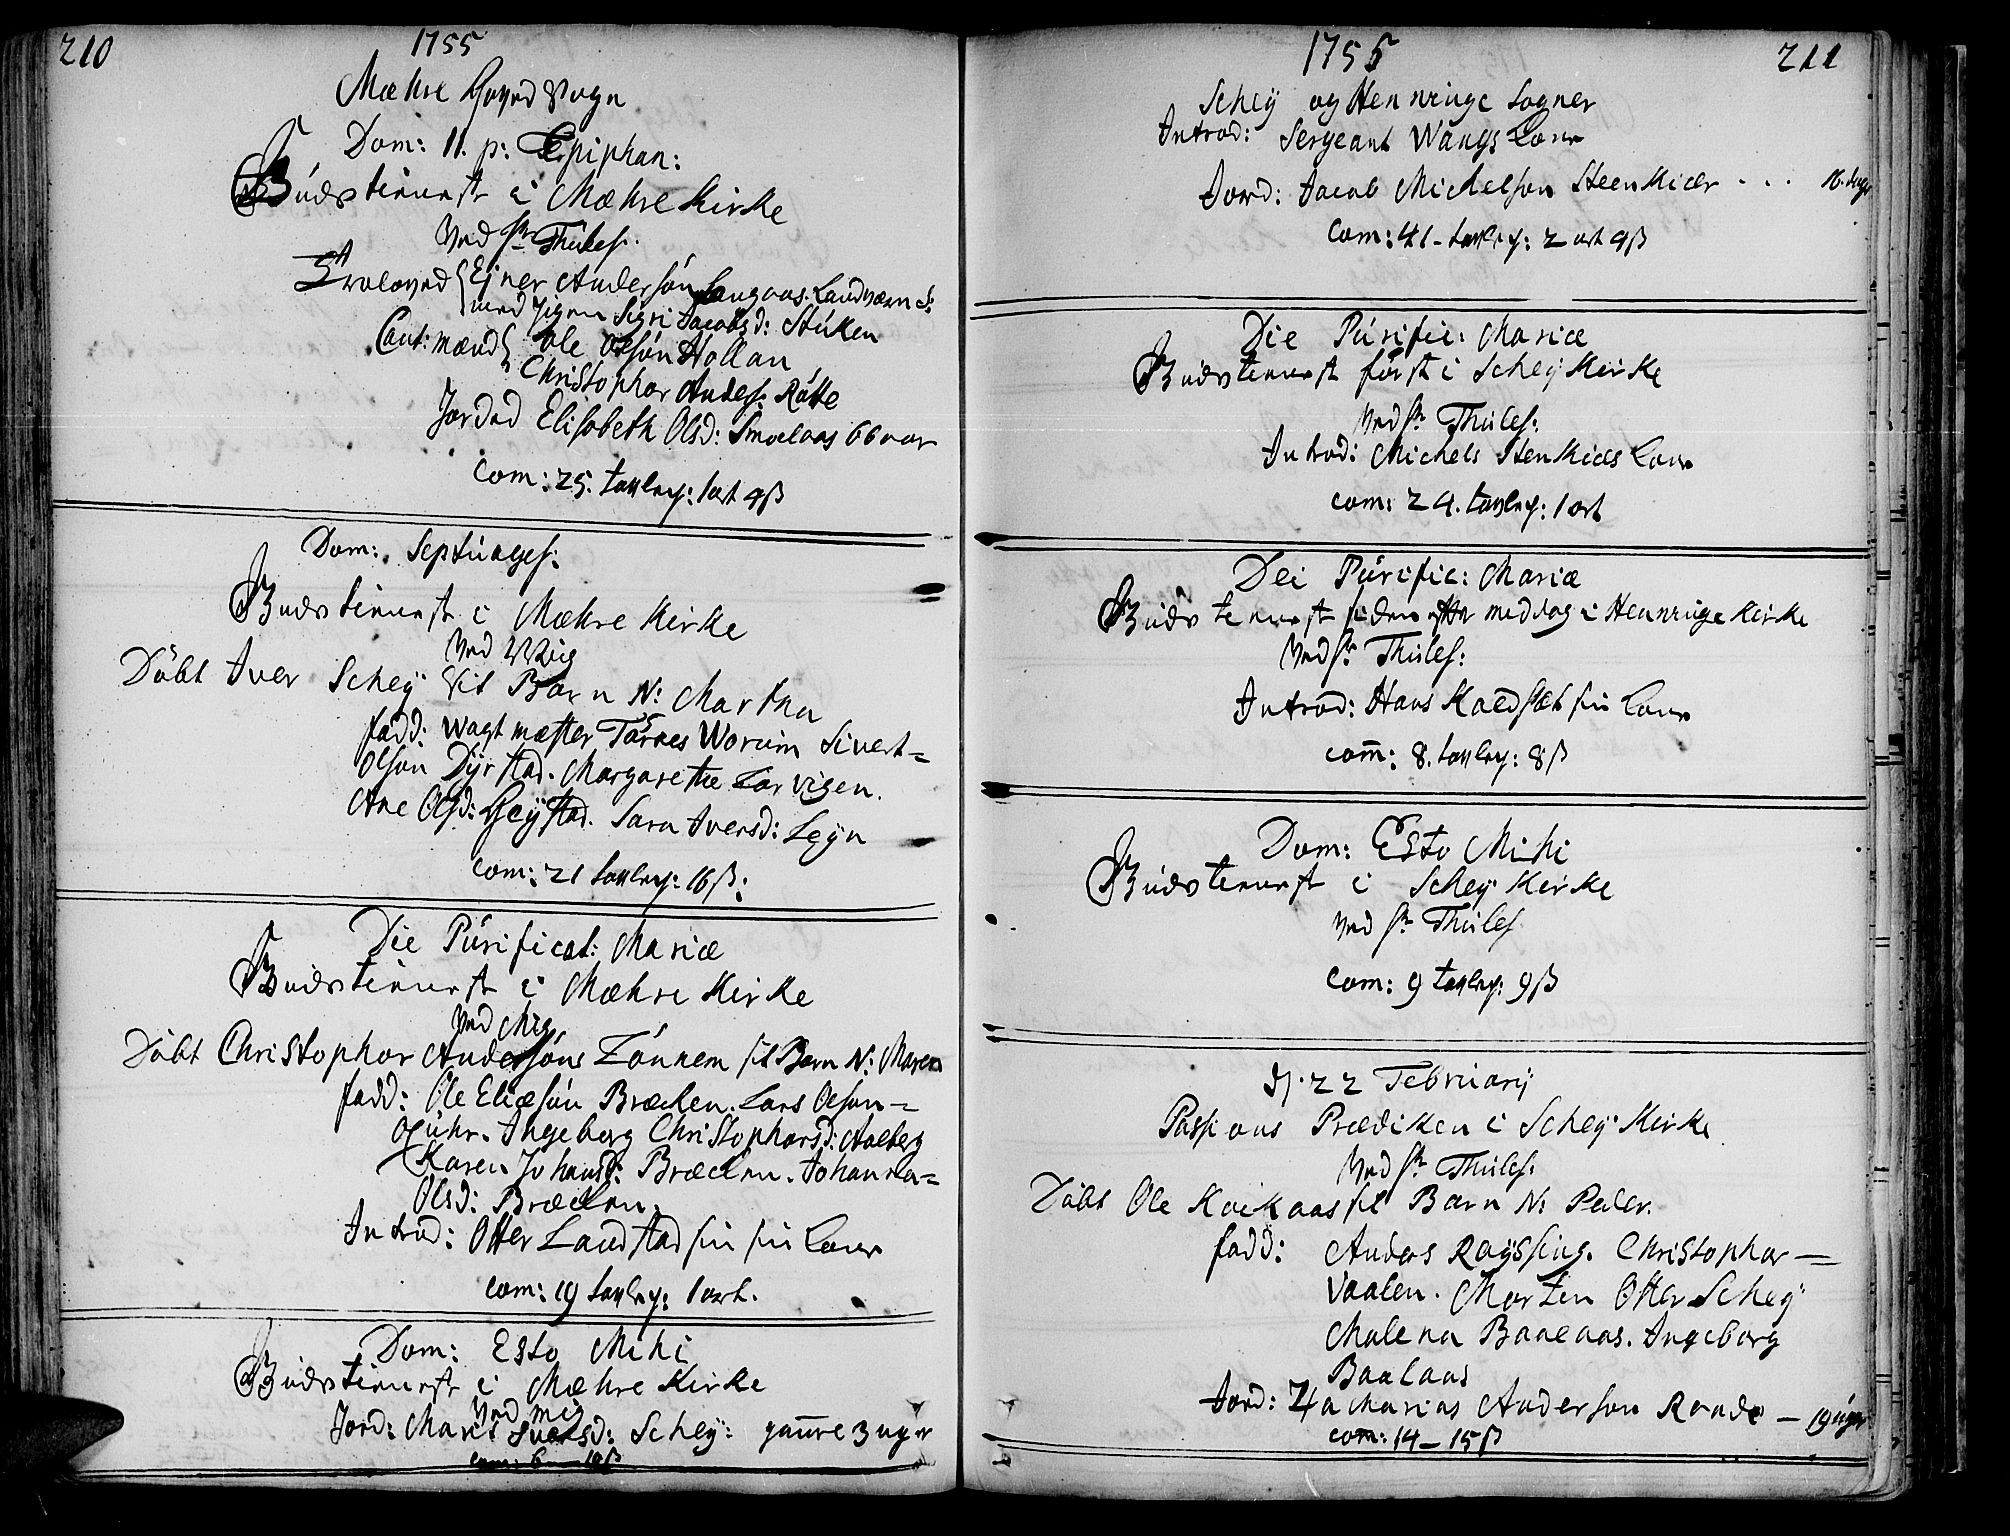 210
1755
Mæhre Hoved Sogn
Dom: 11. p: Epiphan:
Gudstienest i Mæhre Kirke
Ved hr Thiles.
Troloved Ejner Andersön Langaas. Landværn S:
med Pigen Sigri Jacobsd: Stúken
Caut: mænd Ole Olsön Hollan
Christophor Anders: Rötte
Jorded Elisabeth Olsd: Smolaas 66 aar
Com: 25. tavley: 1 ort 9 ß
Dom: Septúages:
Gudstienest i Mæhre Kirke
Ved Mig
Döbt Iver Scheÿ sit Barn N: Martha
fadd: Wagtmæster Törres Worúm Sivert=
Olsön Dÿrstad. Margarethe Larvigen.
Ane Olsd: Heÿstad. Sara Iversd: Leÿn
Com: 21 tavley: 16 ß:
Die Púrificat: Mariæ
Gudstienest i Mæhre Kirke
Ved Mig
Döbt Christophor Andersöns Zönnem sit Barn N: Maren
fadd: Ole Eliæsön Bræden. Lars Olsön=
Ingeborg Christophorsd: Aalberg
Karen Johansd: Bræden. Johanna=
Olsd: Bræden.
Introd: Otter Landstad sin sin Kone
Com: 19 tavley: 1 ort.
Dom: Esto Mihi
Gudstienest i Mæhre Kirke
Ved Mig
Jord: Marit Iversd: Scheÿ: gamle 3 uger
com: 6 — 10 ß
1755
211
Scheÿ og Henninge Sogner
Introd: Sergeant Wangs Kone
Jord: Jacob Michelsön Steenkier . . . 16. dage
Com: 41 - tavley: 2 ort 9 ß
Die Púrific: Mariæ
Gudstienest först i Scheÿ Kirke
Ved hr Thiles:
Introd: Michels Stenkiers Kone
com: 24. tavley: 1 ort
Dei Púrific: Mariæ
Gudstienest siden efter meddag i Henninge Kirke
Ved hr Thiles:
Introd: Hans Kaldsæt sin Kone
com: 8. tavley: 8 ß
Dom: Esto Mihi
Gudstienest i Scheÿ Kirke
Ved hr Thiles
Com: 9 tavley: 9 ß
d. 22 Februarij
Passions Prædiken i Scheÿ Kirke
Ved hr Thiles:
Döbt Ole Koekaas sit Barn N: Peder.
fadd: Anders Raÿssing. Christophor —
Vaalen. Morten Otter Scheÿ
Malena Baalaas. Ingeborg
Baalaas
Jord: Zacharias Anderson Rande — 19 úger
com: 14 — 15 ß